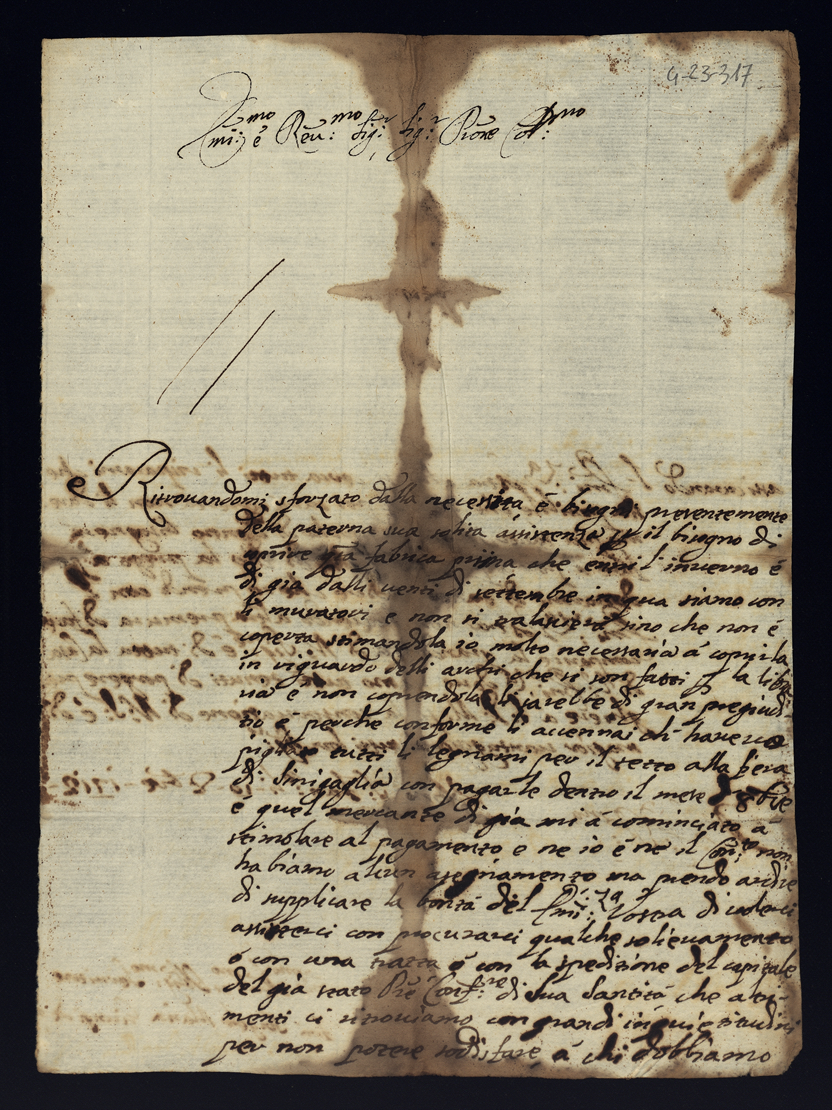 4-23-317
Emi:mo é Reu:mo Sig:r Sig:r Prōne Col:mo
Ritrouandomi sforzato dalla necessita é bisogno
della paterna sua solita assistenza il bisogno di
coprire fabrica prima che entri l'inuerno é
di gia dalli uenti di settembre in qua siamo con
li muratori e non si tralascierà sino che non é
coperta stimandola io molto necessaria á coprila
in riguardo delli archi che si son fatti p la libra
ria e non coprendola li sarebbe di gran pregiudi-
tio é perche conforme li accennai di hauer
pigliato tutti li legnami per il tetto alla fiera
di Sinigaglia con pagarle dentro il mese 8bre
e quel mercante di gia mi á cominciato á
stimolare al pagamento e ne io é ne il Con:to non
habiamo alcun asegniamento ma prendo ardire
di supplicare la bontà del Emi:za Vostra di uolerci
assisterci con procurarci qualche solieuamento
ó con una tratta ó con la speditione del capitale
del già stato Pre Conf:re di Sua Santità che altri-
menti ci ritrouiamo con grandi inquietitudini
per non potere sodisfare á chi dobbiamo